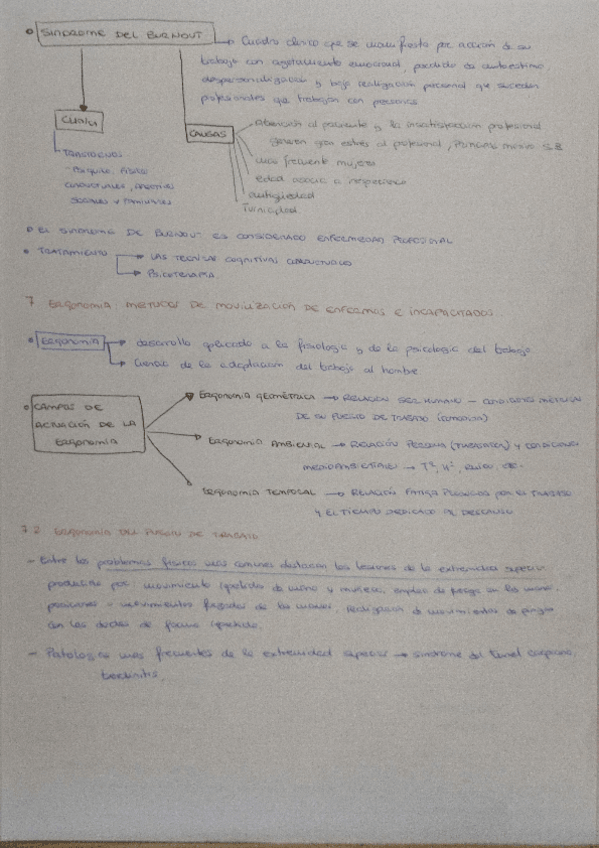 SINDROME DEL BURNOUT → Cuadro clinico que se manifiesta por accion de su
trabajo con agotamiento emocional, perdida de autoestima
despersonalizacion y baja realizacion personal que suceden
profesionales que trabajan con personas
CAUSAS
Atencion al paciente y la insatisfaccion profesional
generan gran estrés al profesional, S.B
mas frecuente mujeres
edad asocia a inexperiencia
antigüedad
Turnicidad
TRASTORNOS
Psiquico, Fisicos
conductuales,
sociales y familiares
EL SINDROME DE BURNOUT ES CONSIDERADO ENFERMEDAD PROFESIONAL
TRATAMIENTO → LAS TECNICAS COGNITIVAS CONDUCTUALES
→ Psicoterapia
7 Ergonomia: METODOS DE MOVILIZACION DE ENFERMOS E INCAPACITADOS.
Ergonomia → desarrollo aplicado a la fisiologia y de la psicologia del trabajo
→ Ciencia de la adaptacion del trabajo al hombre
CAMPOS DE
ACTUACIÓN DE LA
Ergonomia
Ergonomia Geométrica → RELACION SER HUMANO - CONDICIONES METRICAS
DE SU PUESTO DE TRABAJO
Ergonomia Ambiental → RELACIÓN PERSONA (TRABAJADOR) Y CONDICIONES
MEDIOAMBIENTALES → Tª, Hª, Ruido etc.
Ergonomia TEMPORAL → RELACIÓN FATIGA PRODUCIDA POR EL TRABAJO
Y EL TIEMPO DEDICADO AL DESCANSO
7.2 Ergonomia DEL PUESTO DE TRABAJO
- Entre los problemas fisicos mas comunes destacan las lesiones de la extremidad superior
producidas por: movimiento repetido de mano y muñeca, empleo de fuerza en las manos,
posiciones o movimientos forzados de las manos, realizacion de movimientos de pinza
con los dedos de forma repetida.
- Patologias mas frecuentes de la extremidad superior → sindrome del tunel carpiano,
tendinitis.